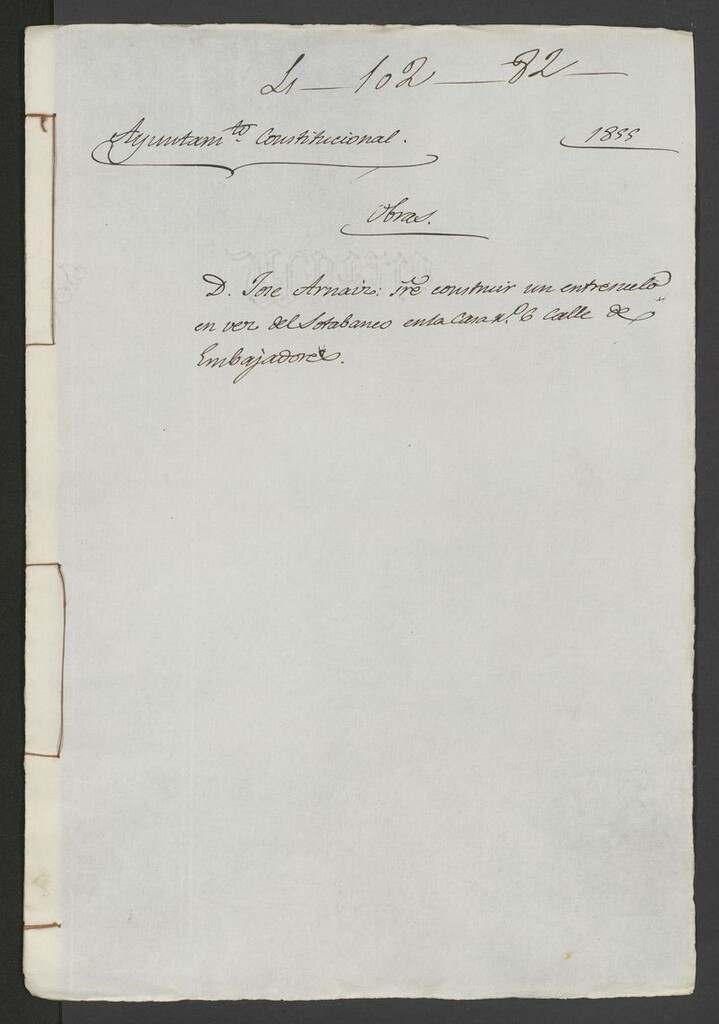 4-102-82
Ayuntam.to Constitucional. 1855
Obras.
D. Jose Arnaiz: Sre construir un entresuelo
en vez del Sotabanco en la Casa n.o 6 Calle de
Embajadores.